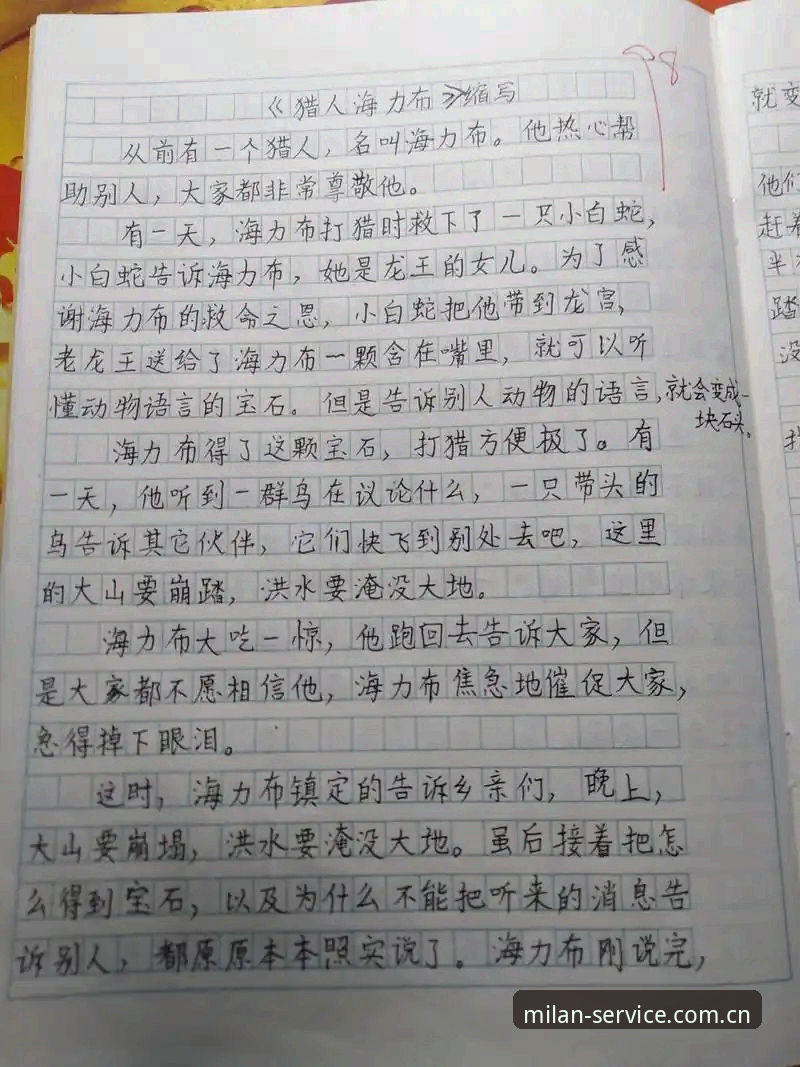 98
《猎人海力布》缩写
从前有一个猎人，名叫海力布。他热心帮
助别人，大家都非常尊敬他。
有一天，海力布打猎时救下了一只小白蛇，
小白蛇告诉海力布，她是龙王的女儿。为了感
谢海力布的救命之恩，小白蛇把他带到龙宫，
老龙王送给了海力布一颗含在嘴里，就可以听
懂动物语言的宝石。但是告诉别人动物的语言，就会变成一
块石头。
海力布得了这颗宝石，打猎方便极了。有
一天，他听到一群鸟在议论什么，一只带头的
鸟告诉其它伙伴，它们快飞到别处去吧，这里
的大山要崩踏，洪水要淹没大地。
海力布大吃一惊，他跑回去告诉大家，但
是大家都不愿相信他，海力布焦急地催促大家，
急得掉下眼泪。
这时，海力布镇定的告诉乡亲们，晚上，
大山要崩塌，洪水要淹没大地。虽后接着把怎
么得到宝石，以及为什么不能把听来的消息告
诉别人，都原原本本照实说了。海力布刚说完，
就变
他们
赶着
半
踏
没
milan-service.com.cn